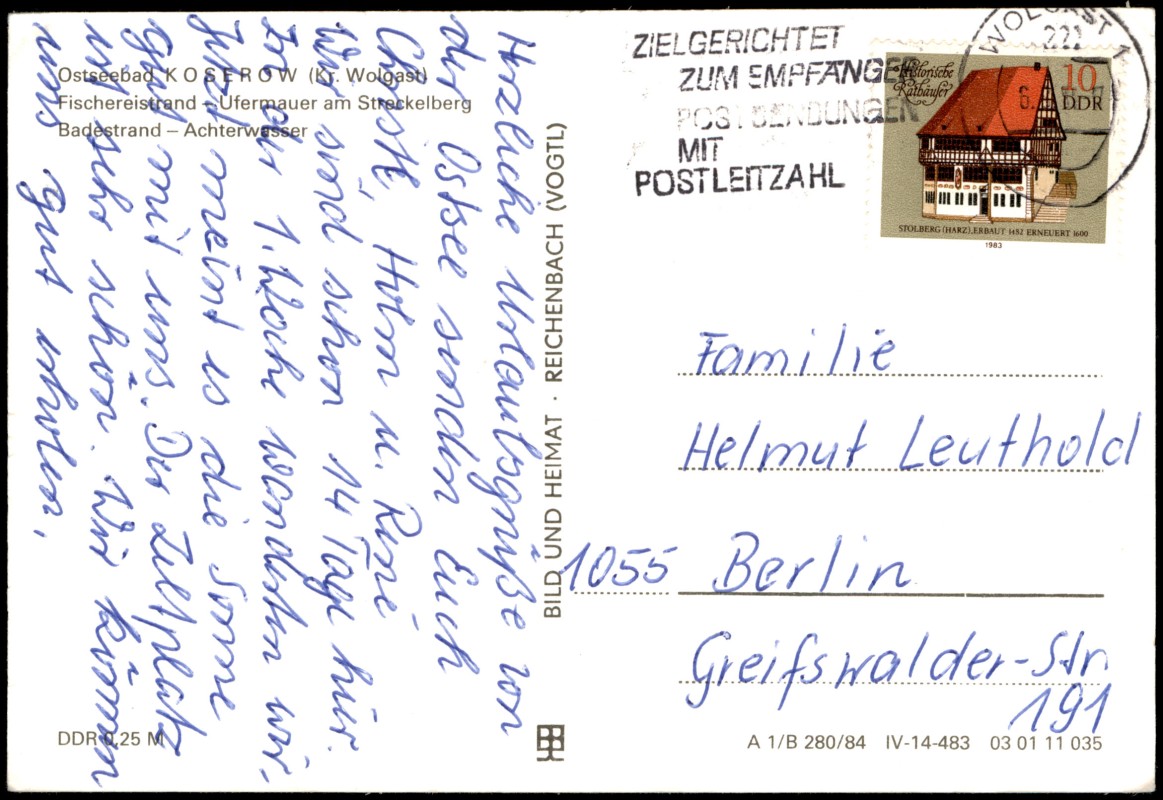 Ostseebad KOSEROW (Kr. Wolgast)
Fischereistrand – Ufermauer am Streckelberg
Badestrand – Achterwasser
Herzliche Urlaubsgrüße von
der Ostsee senden Euch
Christl, Holm u. René
Wir sind schon 14 Tage hier.
In der 1. Woche wandten wir.
Jetzt meint es die Sonne
gut mit uns. Der Zeltplatz
ist sehr schön. Wir können
uns gut erholen.
DDR 0,25 M
BILD UND HEIMAT · REICHENBACH (VOGTL)
ZIELGERICHTET
ZUM EMPFÄNGER
POSTSENDUNGEN
MIT
POSTLEITZAHL
WOLGAST 1
222
6.
Historische
Rathäuser
10
DDR
STOLBERG (HARZ), ERBAUT 1452 ERNEUERT 1600
1983
Familie
Helmut Leuthold
1055 Berlin
Greifswalder-Str
191
A 1/B 280/84 IV-14-483 03 01 11 035